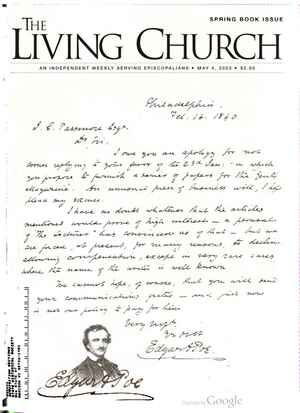 SPRING BOOK ISSUE
THE
LIVING CHURCH
AN INDEPENDENT WEEKLY SERVING EPISCOPALIANS • MAY 4, 2003 • $2.00
Philadelphia.
Feb. 16. 1840
J. E. Passmore Esqr.
Dr Sir.
I owe you an apology for not
sooner replying to your favor of the 23d Jan: – in which
you propose to furnish a series of papers for the Gent's
Magazine. An unusual press of business will, I hope
plead my excuse.
I have no doubt whatever that the articles
mentioned would prove of high interest – a perusal
of the has convinced me of that – but we
are forced, at present, for many reasons, to decline
allowing compensation, except in very rare cases
where the name of the writer is well known.
We cannot hope, of course, that you will send
your communications gratis – and just now
it is not our policy to pay for them.
Very resply.
Yr. Ob St
Edgar A Poe.
Edgar A Poe
Digitized by Google